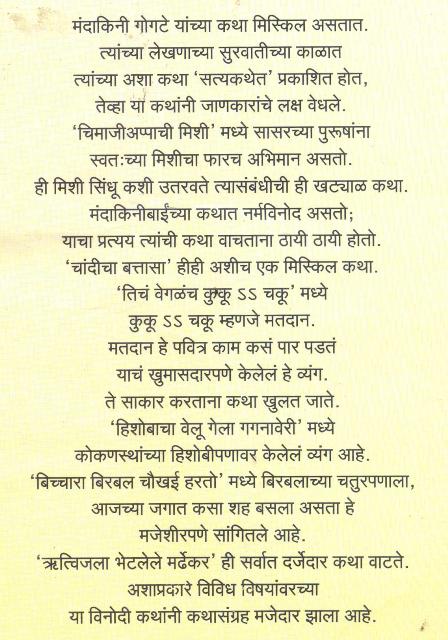 मंदाकिनी गोगटे यांच्या कथा मिस्किल असतात.
त्यांच्या लेखणाच्या सुरवातीच्या काळात
त्यांच्या अशा कथा ‘सत्यकथेत’ प्रकाशित होत,
तेव्हा या कथांनी जाणकारांचे लक्ष वेधले.
‘चिमाजीअप्पाची मिशी’ मध्ये सासरच्या पुरूषांना
स्वतःच्या मिशीचा फारच अभिमान असतो.
ही मिशी सिंधू कशी उतरवते त्यासंबंधीची ही खट्याळ कथा.
मंदाकिनीबाईंच्या कथात नर्मविनोद असतो;
याचा प्रत्यय त्यांची कथा वाचताना ठायी ठायी होतो.
‘चांदीचा बत्तासा’ हीही अशीच एक मिस्किल कथा.
‘तिचं वेगळंच कुकू ऽऽ चकू’ मध्ये
कुकू ऽऽ चकू म्हणजे मतदान.
मतदान हे पवित्र काम कसं पार पडतं
याचं खुमासदारपणे केलेलं हे व्यंग.
ते साकार करताना कथा खुलत जाते.
‘हिशोबाचा वेलू गेला गगनावेरी’ मध्ये
कोकणस्थांच्या हिशोबीपणावर केलेलं व्यंग आहे.
‘बिच्चारा बिरबल चौखई हरतो’ मध्ये बिरबलाच्या चतुरपणाला,
आजच्या जगात कसा शह बसला असता हे
मजेशीरपणे सांगितले आहे.
‘ऋत्विजला भेटलेले मर्ढेकर’ ही सर्वात दर्जेदार कथा वाटते.
अशाप्रकारे विविध विषयांवरच्या
या विनोदी कथांनी कथासंग्रह मजेदार झाला आहे.